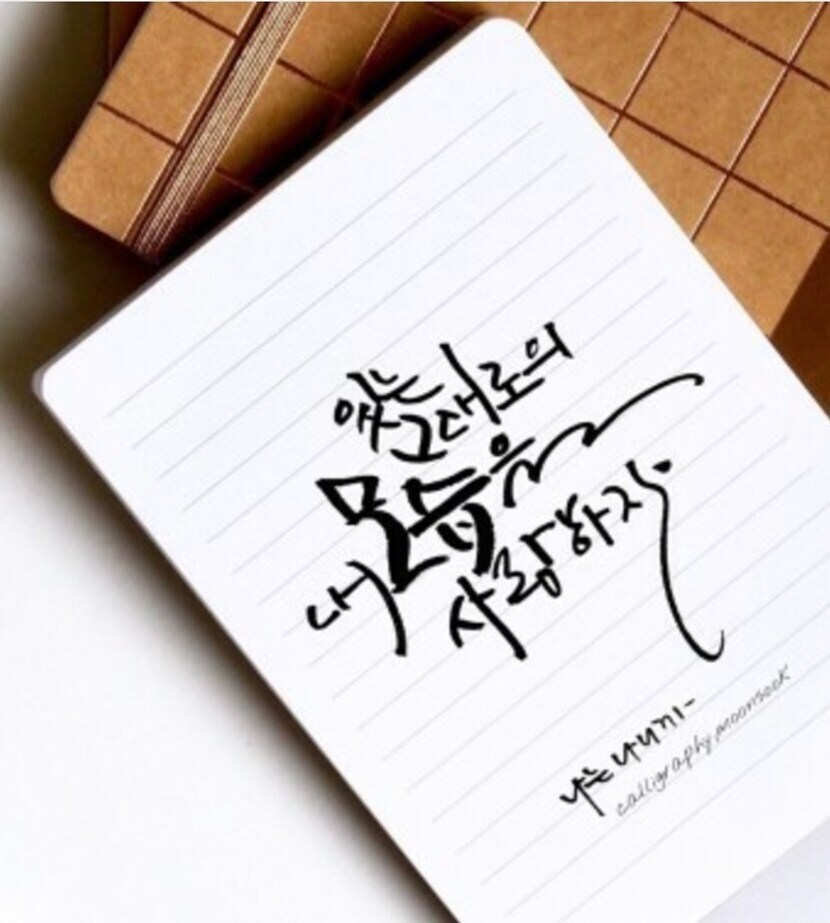 있는그대로의
내 모습을
사랑하자
나는 나니까-
calligraphy.moonseok